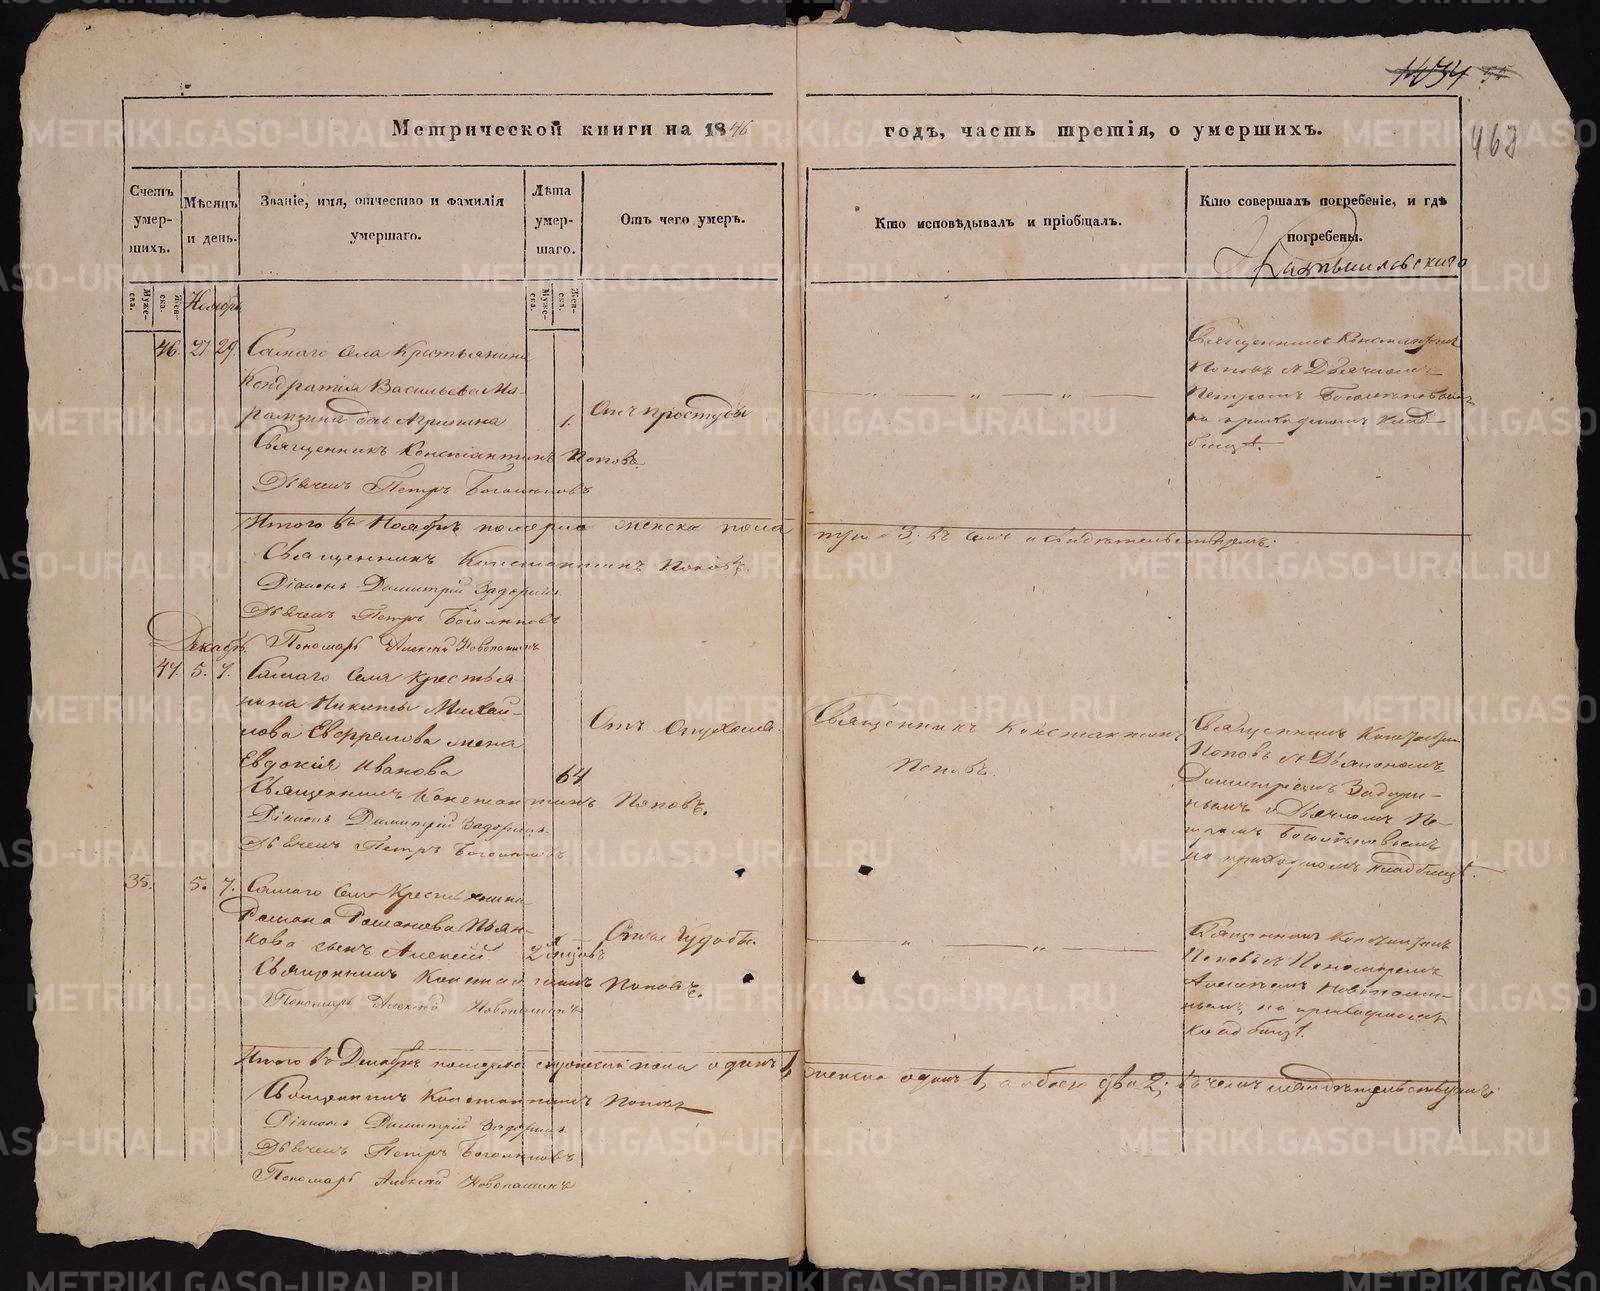 1034
Метрической книги на 1846 годъ, часть третія, о умершихъ.
468
Счетъ умер-шихъ.
Мѣсяцъ и день.
Званіе, имя, отчество и фамилія умершаго.
Лѣта умер-шаго.
Отъ чего умеръ.
Кто исповѣдывалъ и пріобщалъ.
Кто совершалъ погребеніе, и гдѣ погребены.
Муже-ска.
Жен-ска.
Муже-ска.
Жен-ска.
Ноябрь
46. 27 29. Самаго Села Крестьянина
Кондратія Васильева Ма-
дочь Агрипина
1.
Отъ простуды
Священникъ Константинъ Поповъ.
Дьячекъ Петръ Боголѣповъ
Священникъ Константинъ
Поповъ и Дьячкомъ
Петромъ Боголѣповымъ
на приходскомъ клад-
бищѣ.
Итого въ Ноябрѣ померло женска пола три 3. въ чемъ и свидѣтельствуемъ:
Священникъ Константинъ Поповъ.
Діаконъ Димитрій Задоринъ
Дьячекъ Петръ Боголѣповъ
Пономарь Алексій Новопашинъ
Декабрь
47. 5. 7. Самаго Села крестья
нина Никиты Михай-
лова Евфремова жена
Евдокія Иванова
64
Отъ
Священникъ Константинъ
Поповъ.
Священникъ Константинъ Поповъ.
Діаконъ Димитрій Задоринъ
Дьячекъ Петръ Боголѣповъ
Священникъ Константинъ
Поповъ съ Діакономъ
Димитріемъ Задори-
нымъ и Дьячкомъ Пе-
тромъ Боголѣповымъ
на приходскомъ кладбищѣ.
35. 5. 7. Самаго Села Крестьянина
Романа Романова Пьян-
кова сынъ Алексій
2
Священникъ Константинъ Поповъ.
Пономарь Алексій Новопашинъ
Священникъ Константинъ
Поповъ съ Пономаремъ
Алексіемъ Новопаши-
нымъ, на приходскомъ
кладбищѣ.
Итого въ Декабрѣ померло мужеска пола одинъ 1, женска одинъ 1, а обоего два 2; въ чемъ и свидѣтельствуемъ:
Священникъ Константинъ Поповъ
Діаконъ Димитрій Задоринъ
Дьячекъ Петръ Боголѣповъ
Пономарь Алексій Новопашинъ
METRIKI.GASO-URAL.RU